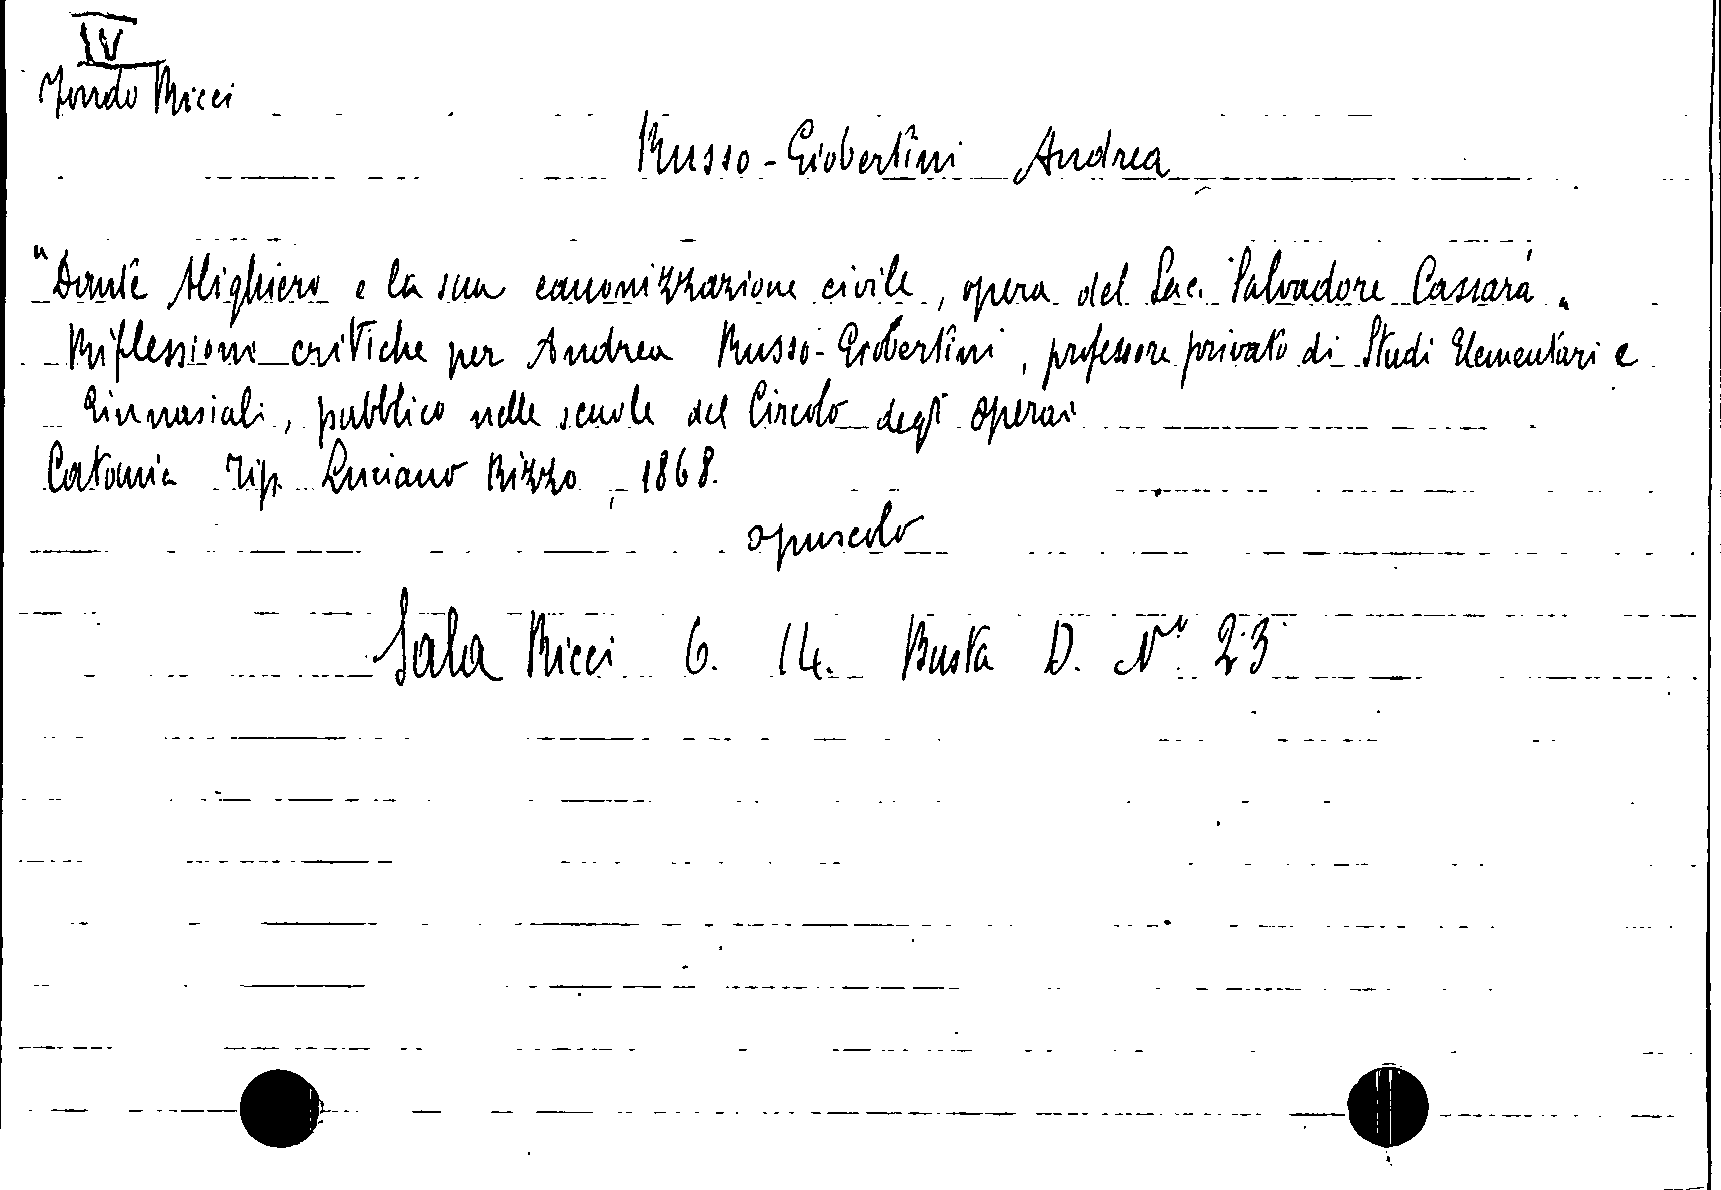 IV
Fondo Ricci
Russo-Giobertini Andrea
"Dante Alighiero e la sua canonizzazione civile, opera del Sac. Salvadore Cassarà"
Riflessioni critiche per Andrea Russo-Giobertini, professore privato di Studi Elementari e
Ginnasiali, pubblico nelle scuole del Circolo degli operai
Catania Tip. Luciano Rizzo, 1868.
opuscolo
Sala Ricci 6. 14. Busta D. N° 23